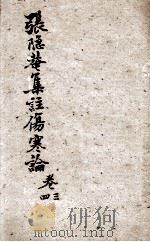 張隐菴集註傷寒論
卷三
四